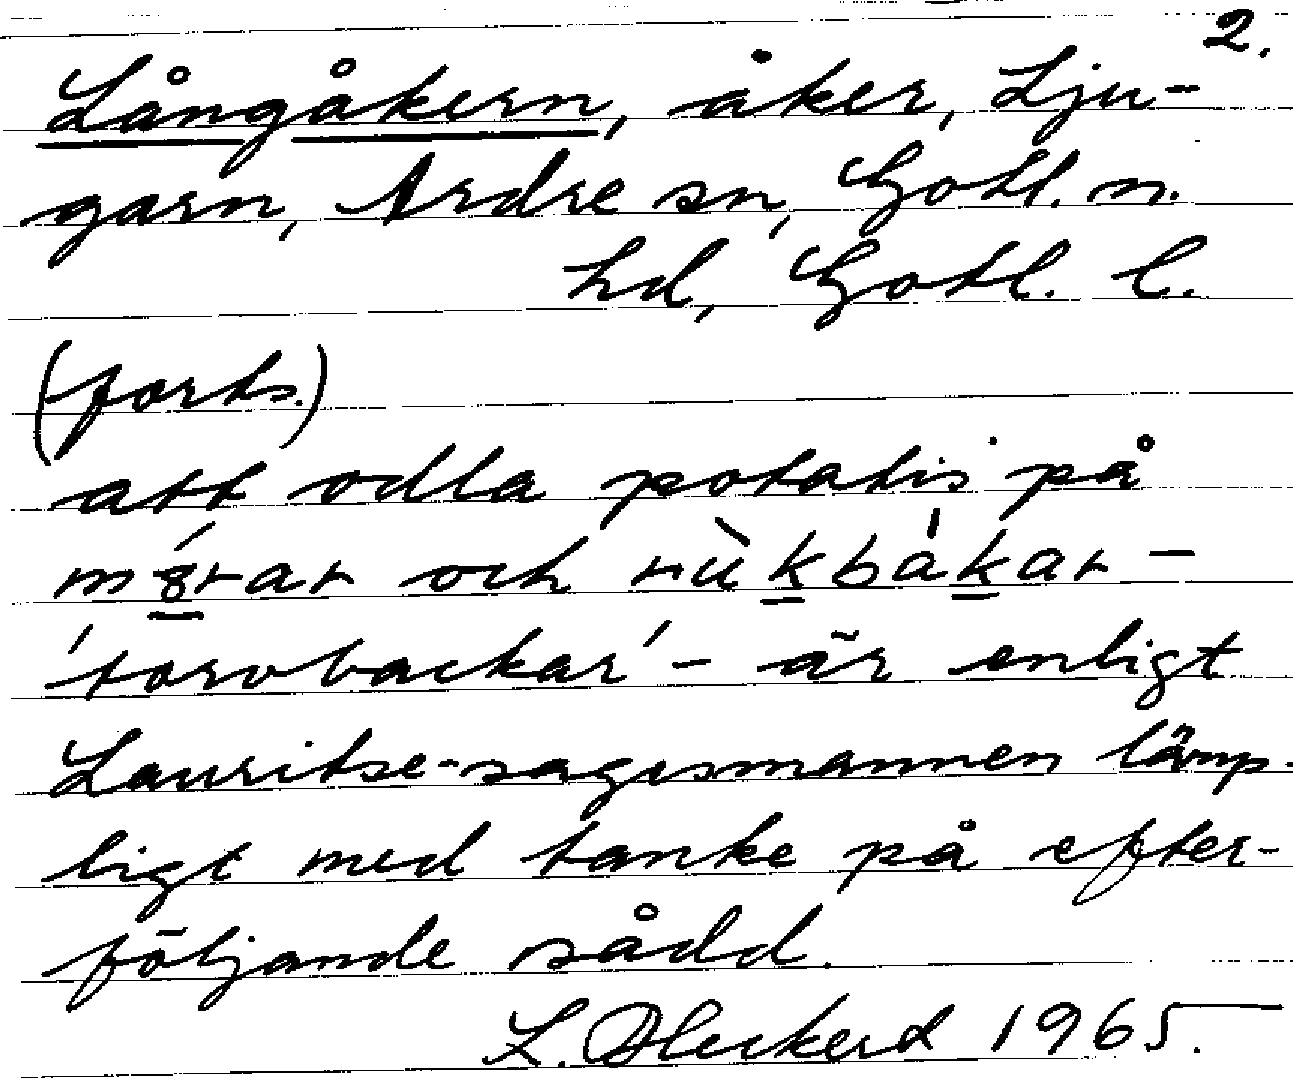 2.
Långåkern, åker, Lju-
garn, Ardre sn, Gotl. n.
hd, Gotl. l.
(forts.)
att odla potatis på
och
'torvbackar' - är enligt
Lauritse-sagesmannen lämp-
ligt med tanke på efter-
följande sådd.
L. 1965.